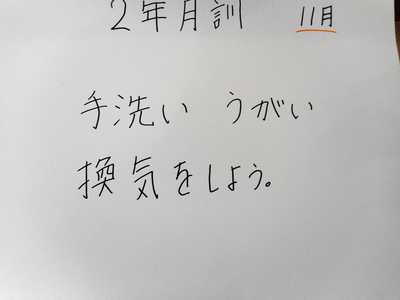 2年月訓 11月
手洗い うがい
換気をしよう。